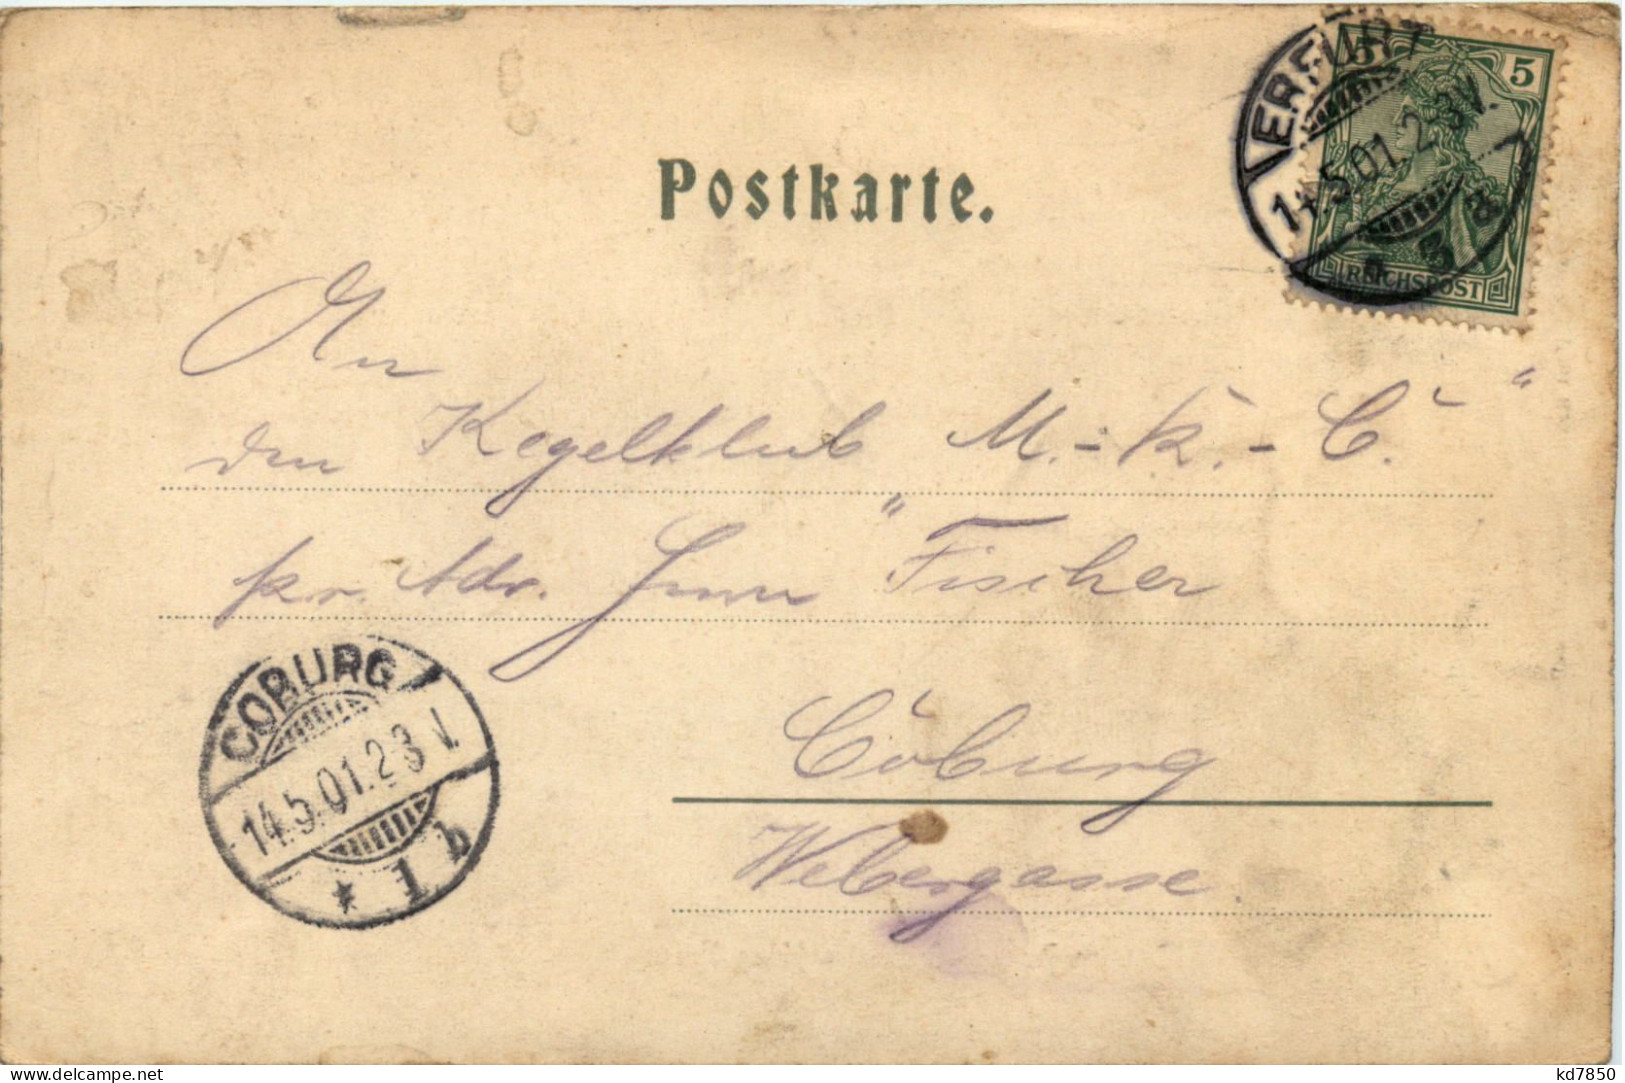 Postkarte.
ERFURT
14.5.01. 2-3V.
* 3 a
5 5
REICHSPOST
An
den Kegelklub M.-K.-C."
pr. Adr. "Fischer
Coburg
Webergasse.
COBURG
14.5.01. 2-3 V.
* 1 b
delcampe.net
kd7850